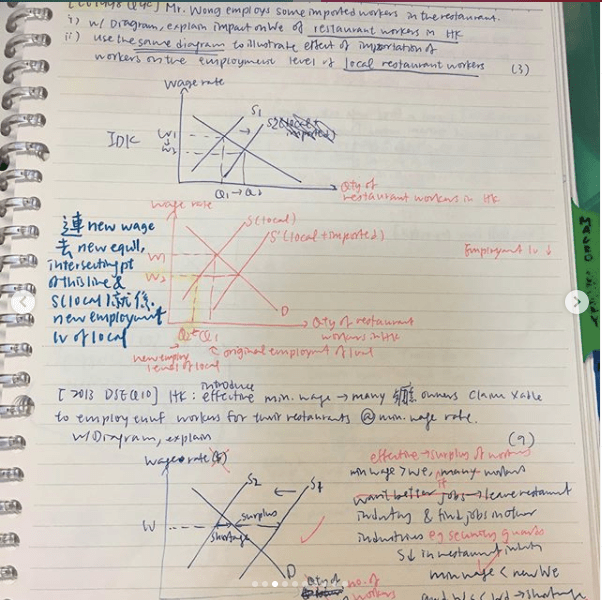 Mr. Wong employs some imported workers in the restaurant.
i) w/ Diagram, explain impact on We of restaurant workers in HK
ii) use the same diagram to illustrate effect of importation of
workers on the employment level of local restaurant workers (3)
wage rate
S1
S2
IDK
W1
W2
Q1 → Q2
Qty of
restaurant workers in HK
wage rate
S (local)
S' (local + imported)
W1
W2
D
Q2 Q1
Qty of restaurant
workers in HK
new employ
level of local
original employment of local
Employment lv ↓
連 new wage
去 new equil,
intersecting pt
of this line &
S(local) 就係
new employment
lv of local
[2013 DSE Q10] HK: introduce effective min. wage → many owners claim
to employ enuf workers for their restaurants @ min. wage rate.
w/ Diagram, explain (9)
wage rate
S2
S1
W
surplus
shortage
D
Qty of
no. of
workers
effective → surplus of workers
min wage > We, many
jobs → leave restaurant
industry & find jobs in other
industries eg security guards
S↓ in restaurant
min wage < new We